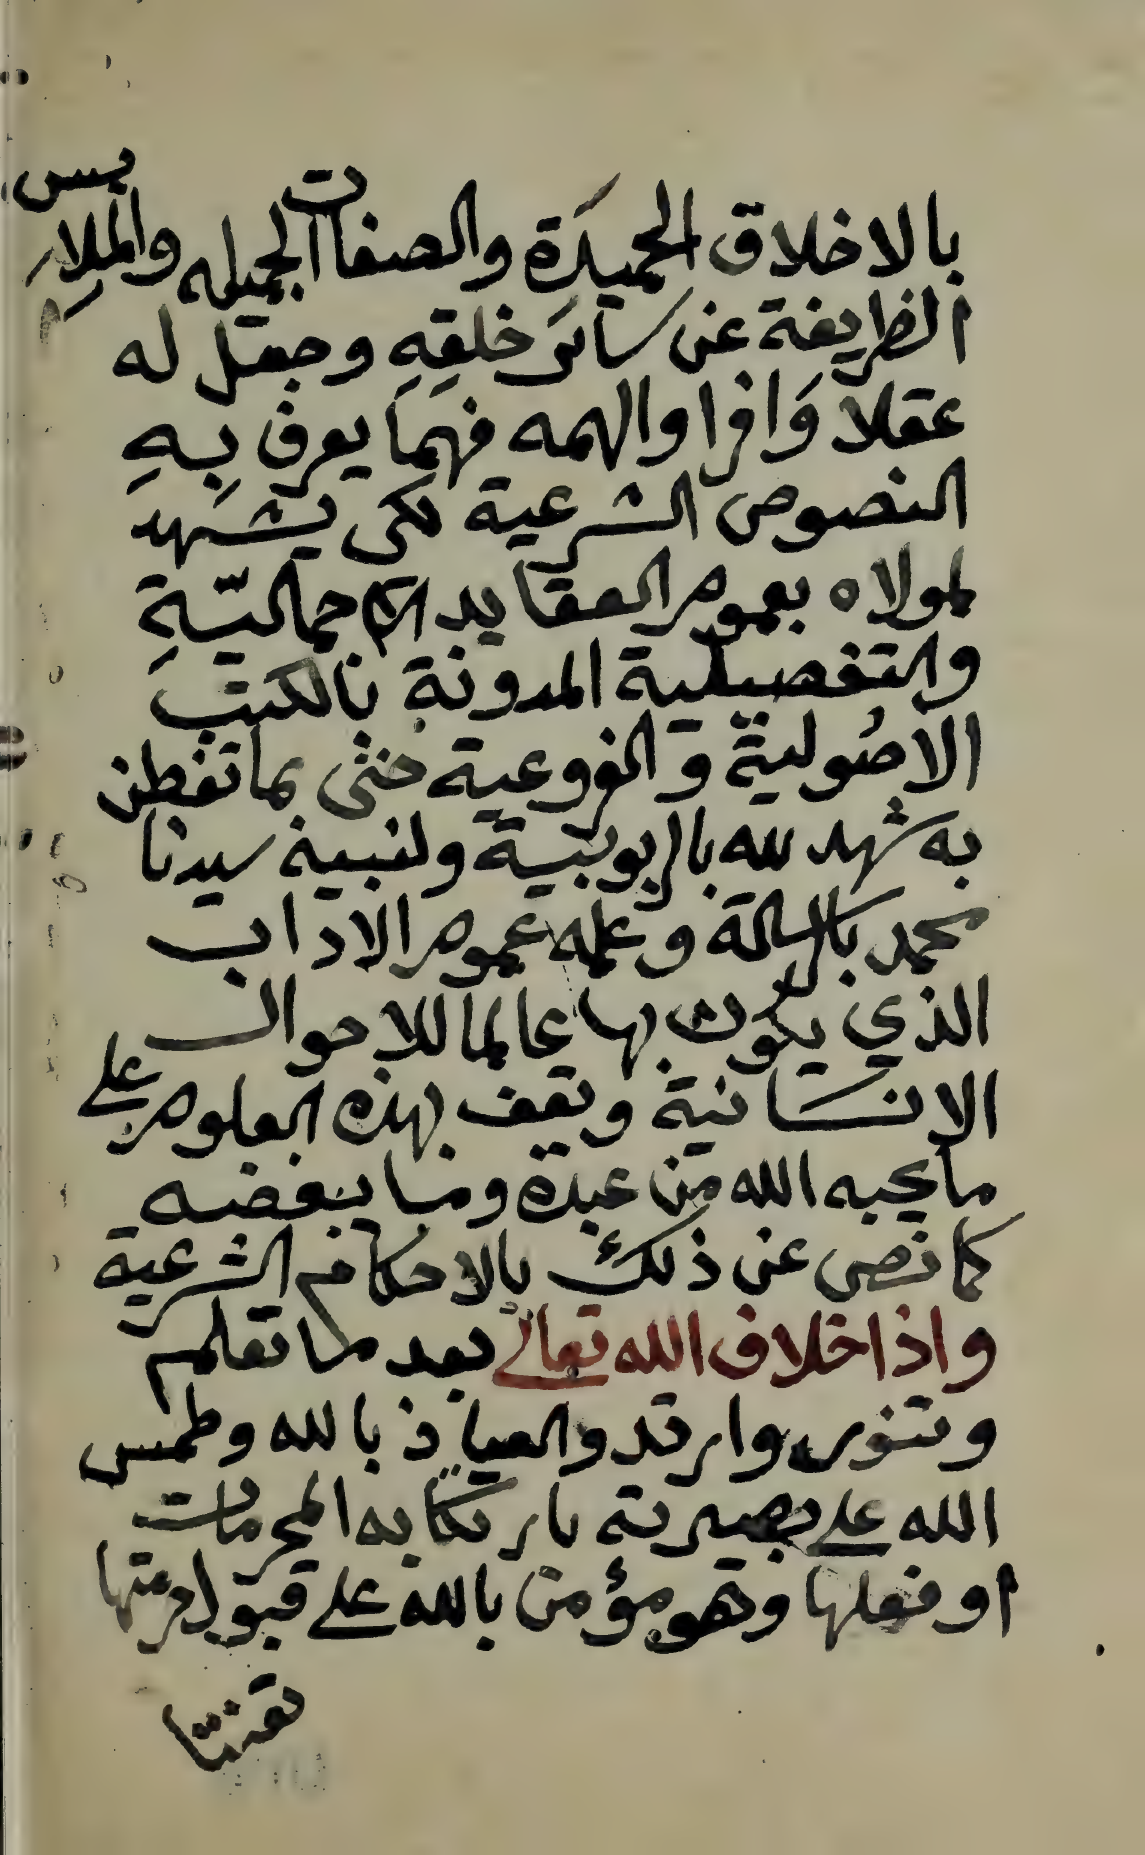 بالاخلاق الحميدة والصفات الجميله والملابس
الظريفة عن سائر خلقهِ وجعل له
عقلا وَافرا والهمه فهمًا يعرف بِهِ
النصوص الشرعية لكى يشهد
لمولاه بعموم العقايد الاجماليّةِ
والتفصيلية المدونة بالكتب
الاصُولية والفروعية حتى بما تفطن
به شهد لله بالربوبية ولنبيه سيدنا
محمد بالرسالة وعلمه عموم الاداب
الذي يكون بها عالما للاحوال
الانسانية ويقف بهذه العلوم على
ما يحبه الله من عبده وما يبغضه
كما نص عن ذلك بالاحكام الشرعية
واذا خلاف الله تعالى بعد ما تعلم
وتنور وارتد والعياذ بالله وطمس
الله على بصيرته بارتكابه المحرمات
او فعلها وهو مؤمن بالله على قبول حرمتها